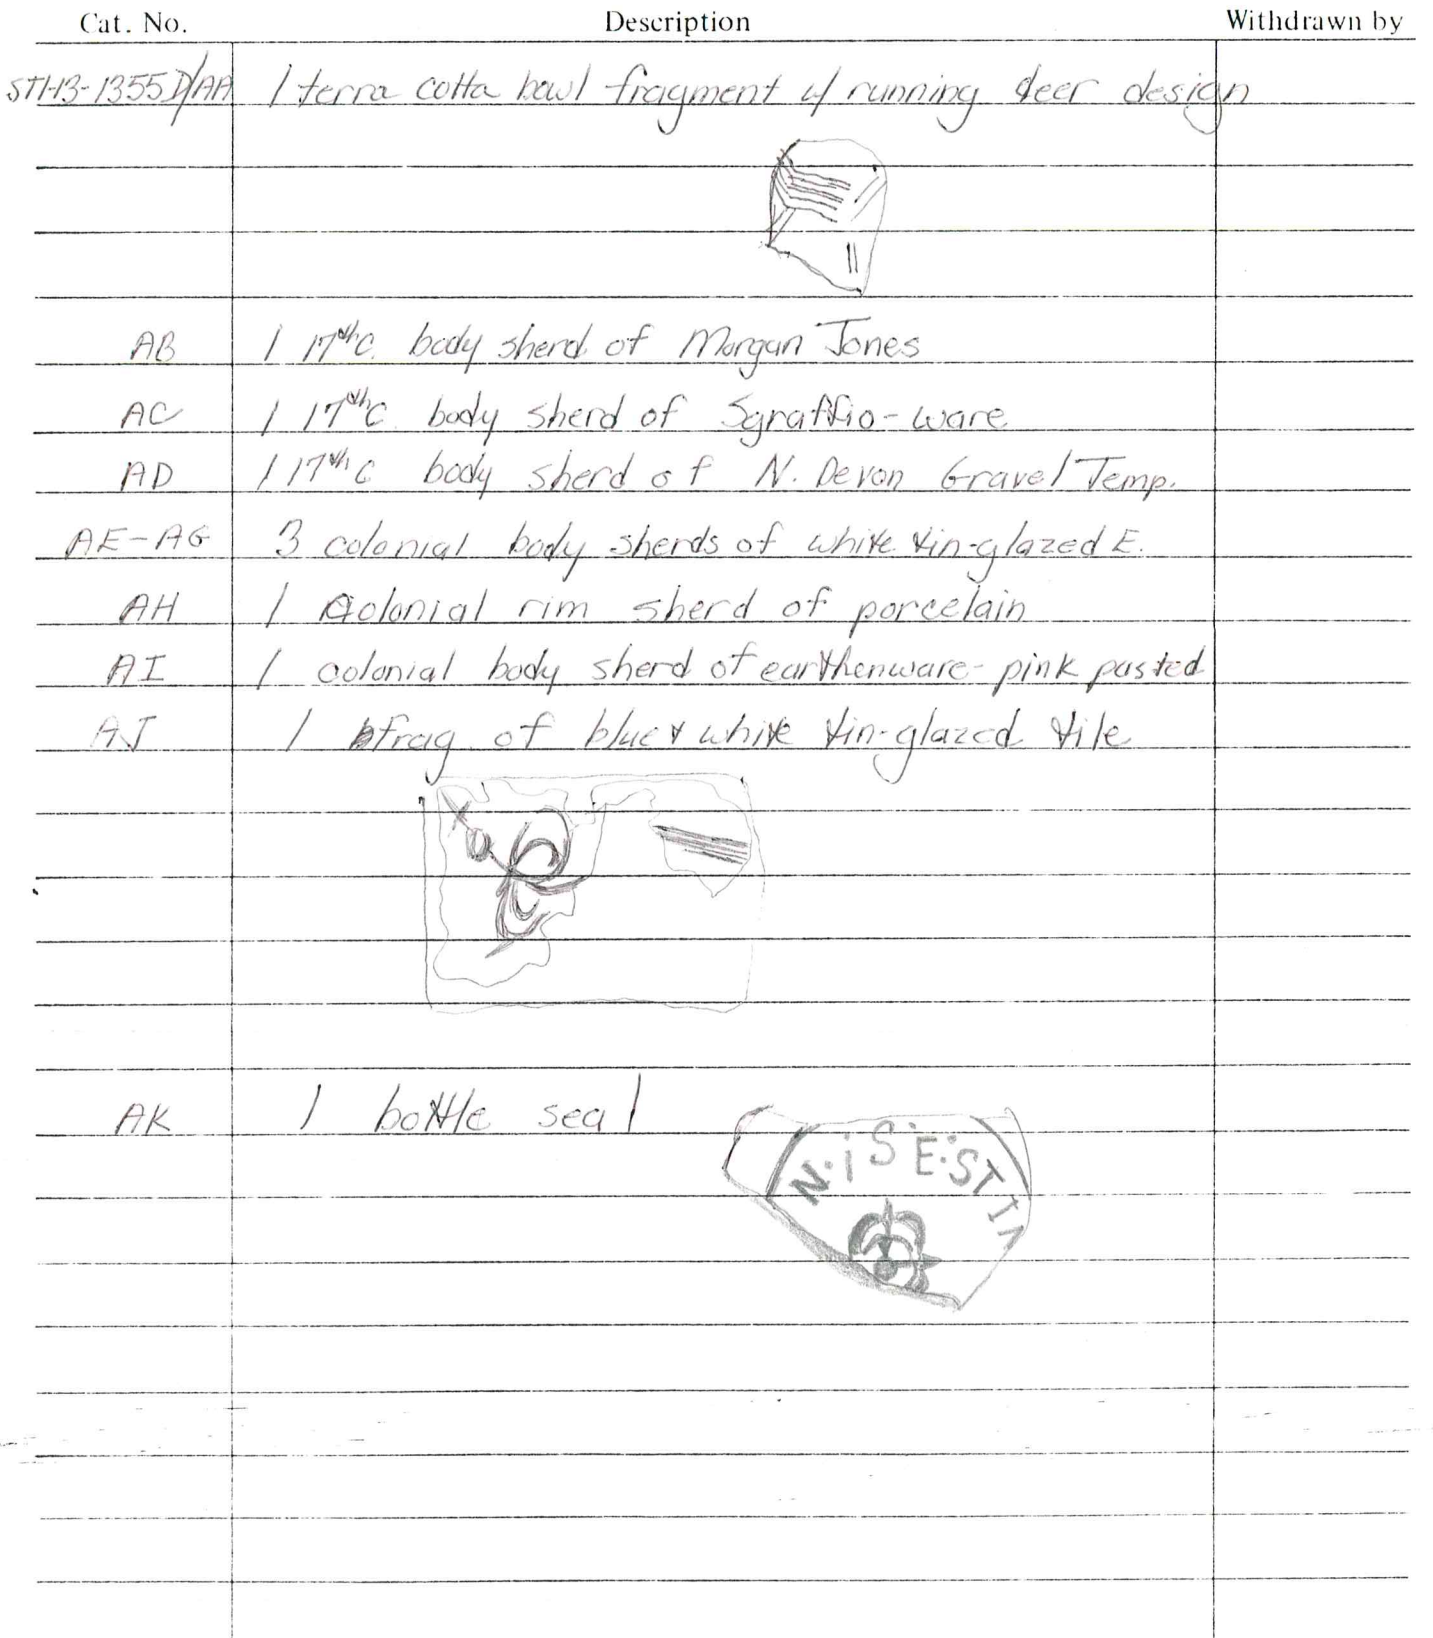 Cat. No. Description Withdrawn by
ST1-13-1355D/AA 1 terra cotta bowl fragment w/ running deer design
AB 1 17thC. body sherd of Morgan Jones
AC 1 17thC. body sherd of Sgraffio-ware
AD 1 17thC body sherd of N. Devon Gravel Temp.
AE-AG 3 colonial body sherds of white tin-glazed E.
AH 1 colonial rim sherd of porcelain
AI 1 colonial body sherd of earthenware-pink pasted
AJ 1 frag of blue & white tin-glazed tile
AK 1 bottle seal
N·iS·E·STIN